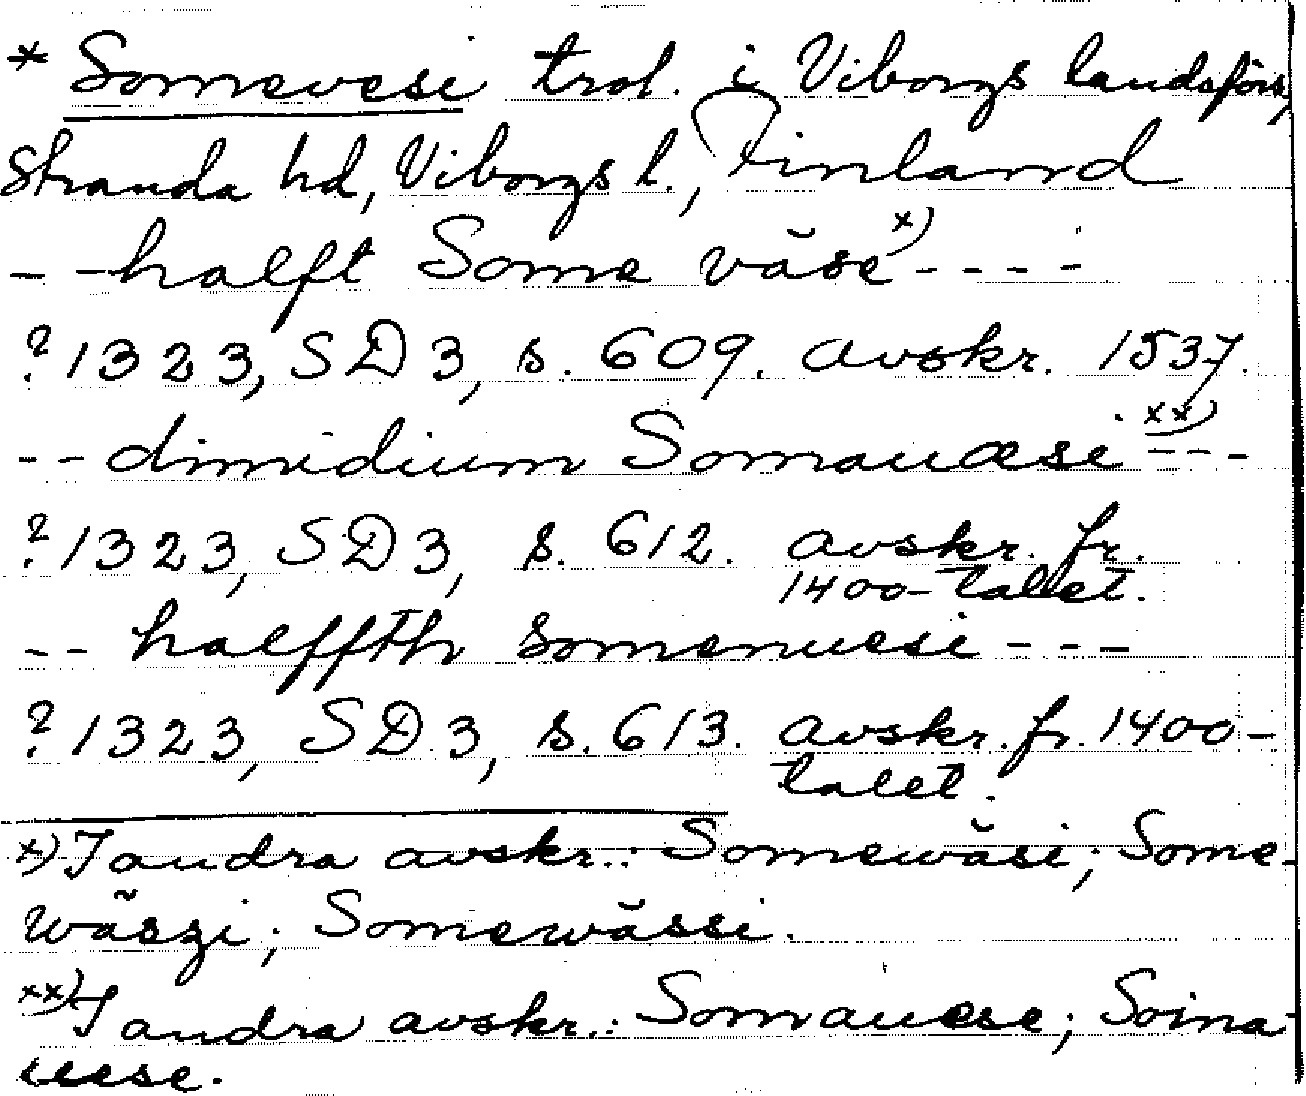 * Somevesi trol. i Viborgs landsförs,
Stranda hd, Viborgs l., Finland
- - halft Some väse x) - - - -
? 1323, SD 3, s. 609. avskr. 1537.
- - dimidium Somauæsi xx) - - -
? 1323, SD 3, s. 612. avskr. fr.
1400-talet.
- - halffth somenuesi - - -
? 1323, SD 3, s. 613. avskr. fr. 1400-
talet.
x) I andra avskr.: Somewäsi; Some-
wäszi; Somewässi.
xx) I andra avskr.: Somauese; Soina-
uese.